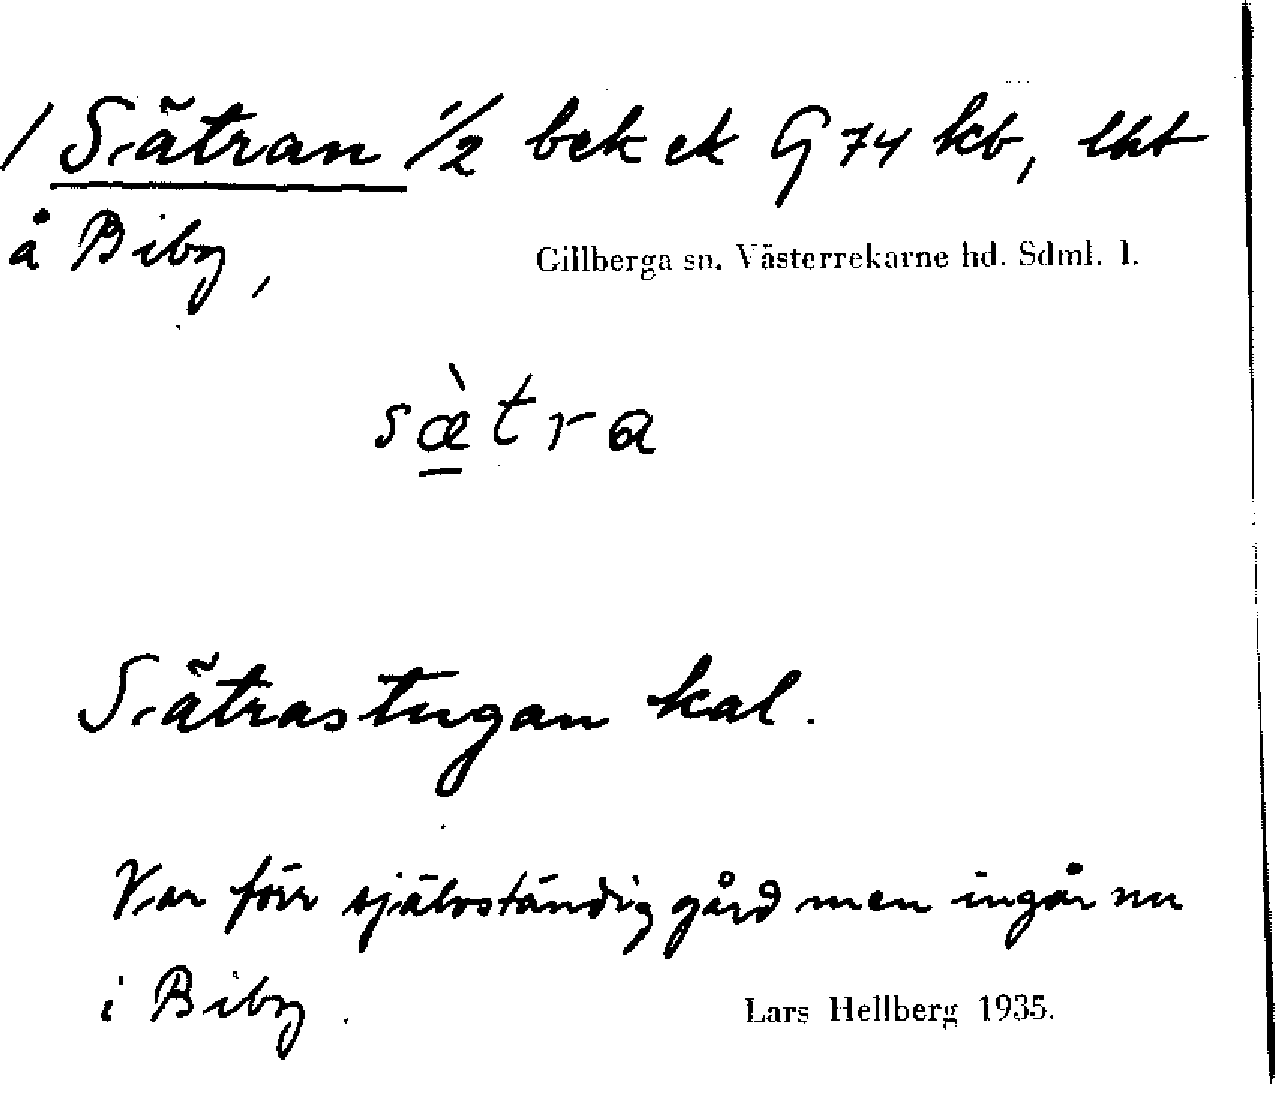 / Sätran 1/2 bek ek G 74 kb, lht
å Biby,
Gillberga sn. Västerrekarne hd. Sdml. l.
sæ̀tra
Sätrastugan kal.
Var förr självständig gård men ingår nu
i Biby.
Lars Hellberg 1935.